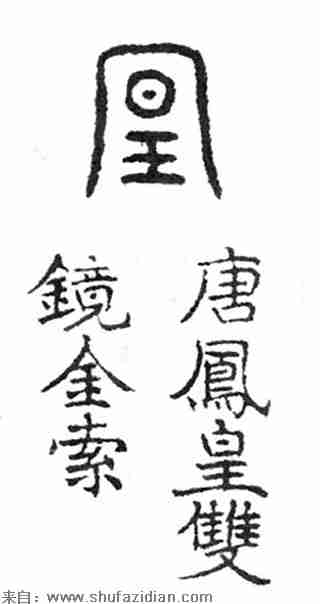 凰
唐鳳皇雙
鏡金索
来自：www.shufazidian.com